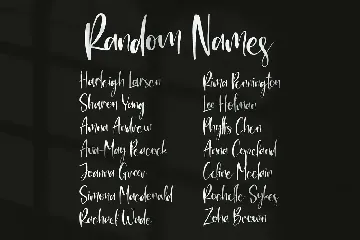 Random Names
Harleigh Larsen
Sharon Yang
Amna Andrew
Ava-May Peacock
Joanna Greer
Simona Macdonald
Rachael Wade
Rima Pennington
Leo Holman
Phyllis Chen
Anna Copeland
Celine Mcclain
Rochelle Sykes
Zoha Brown